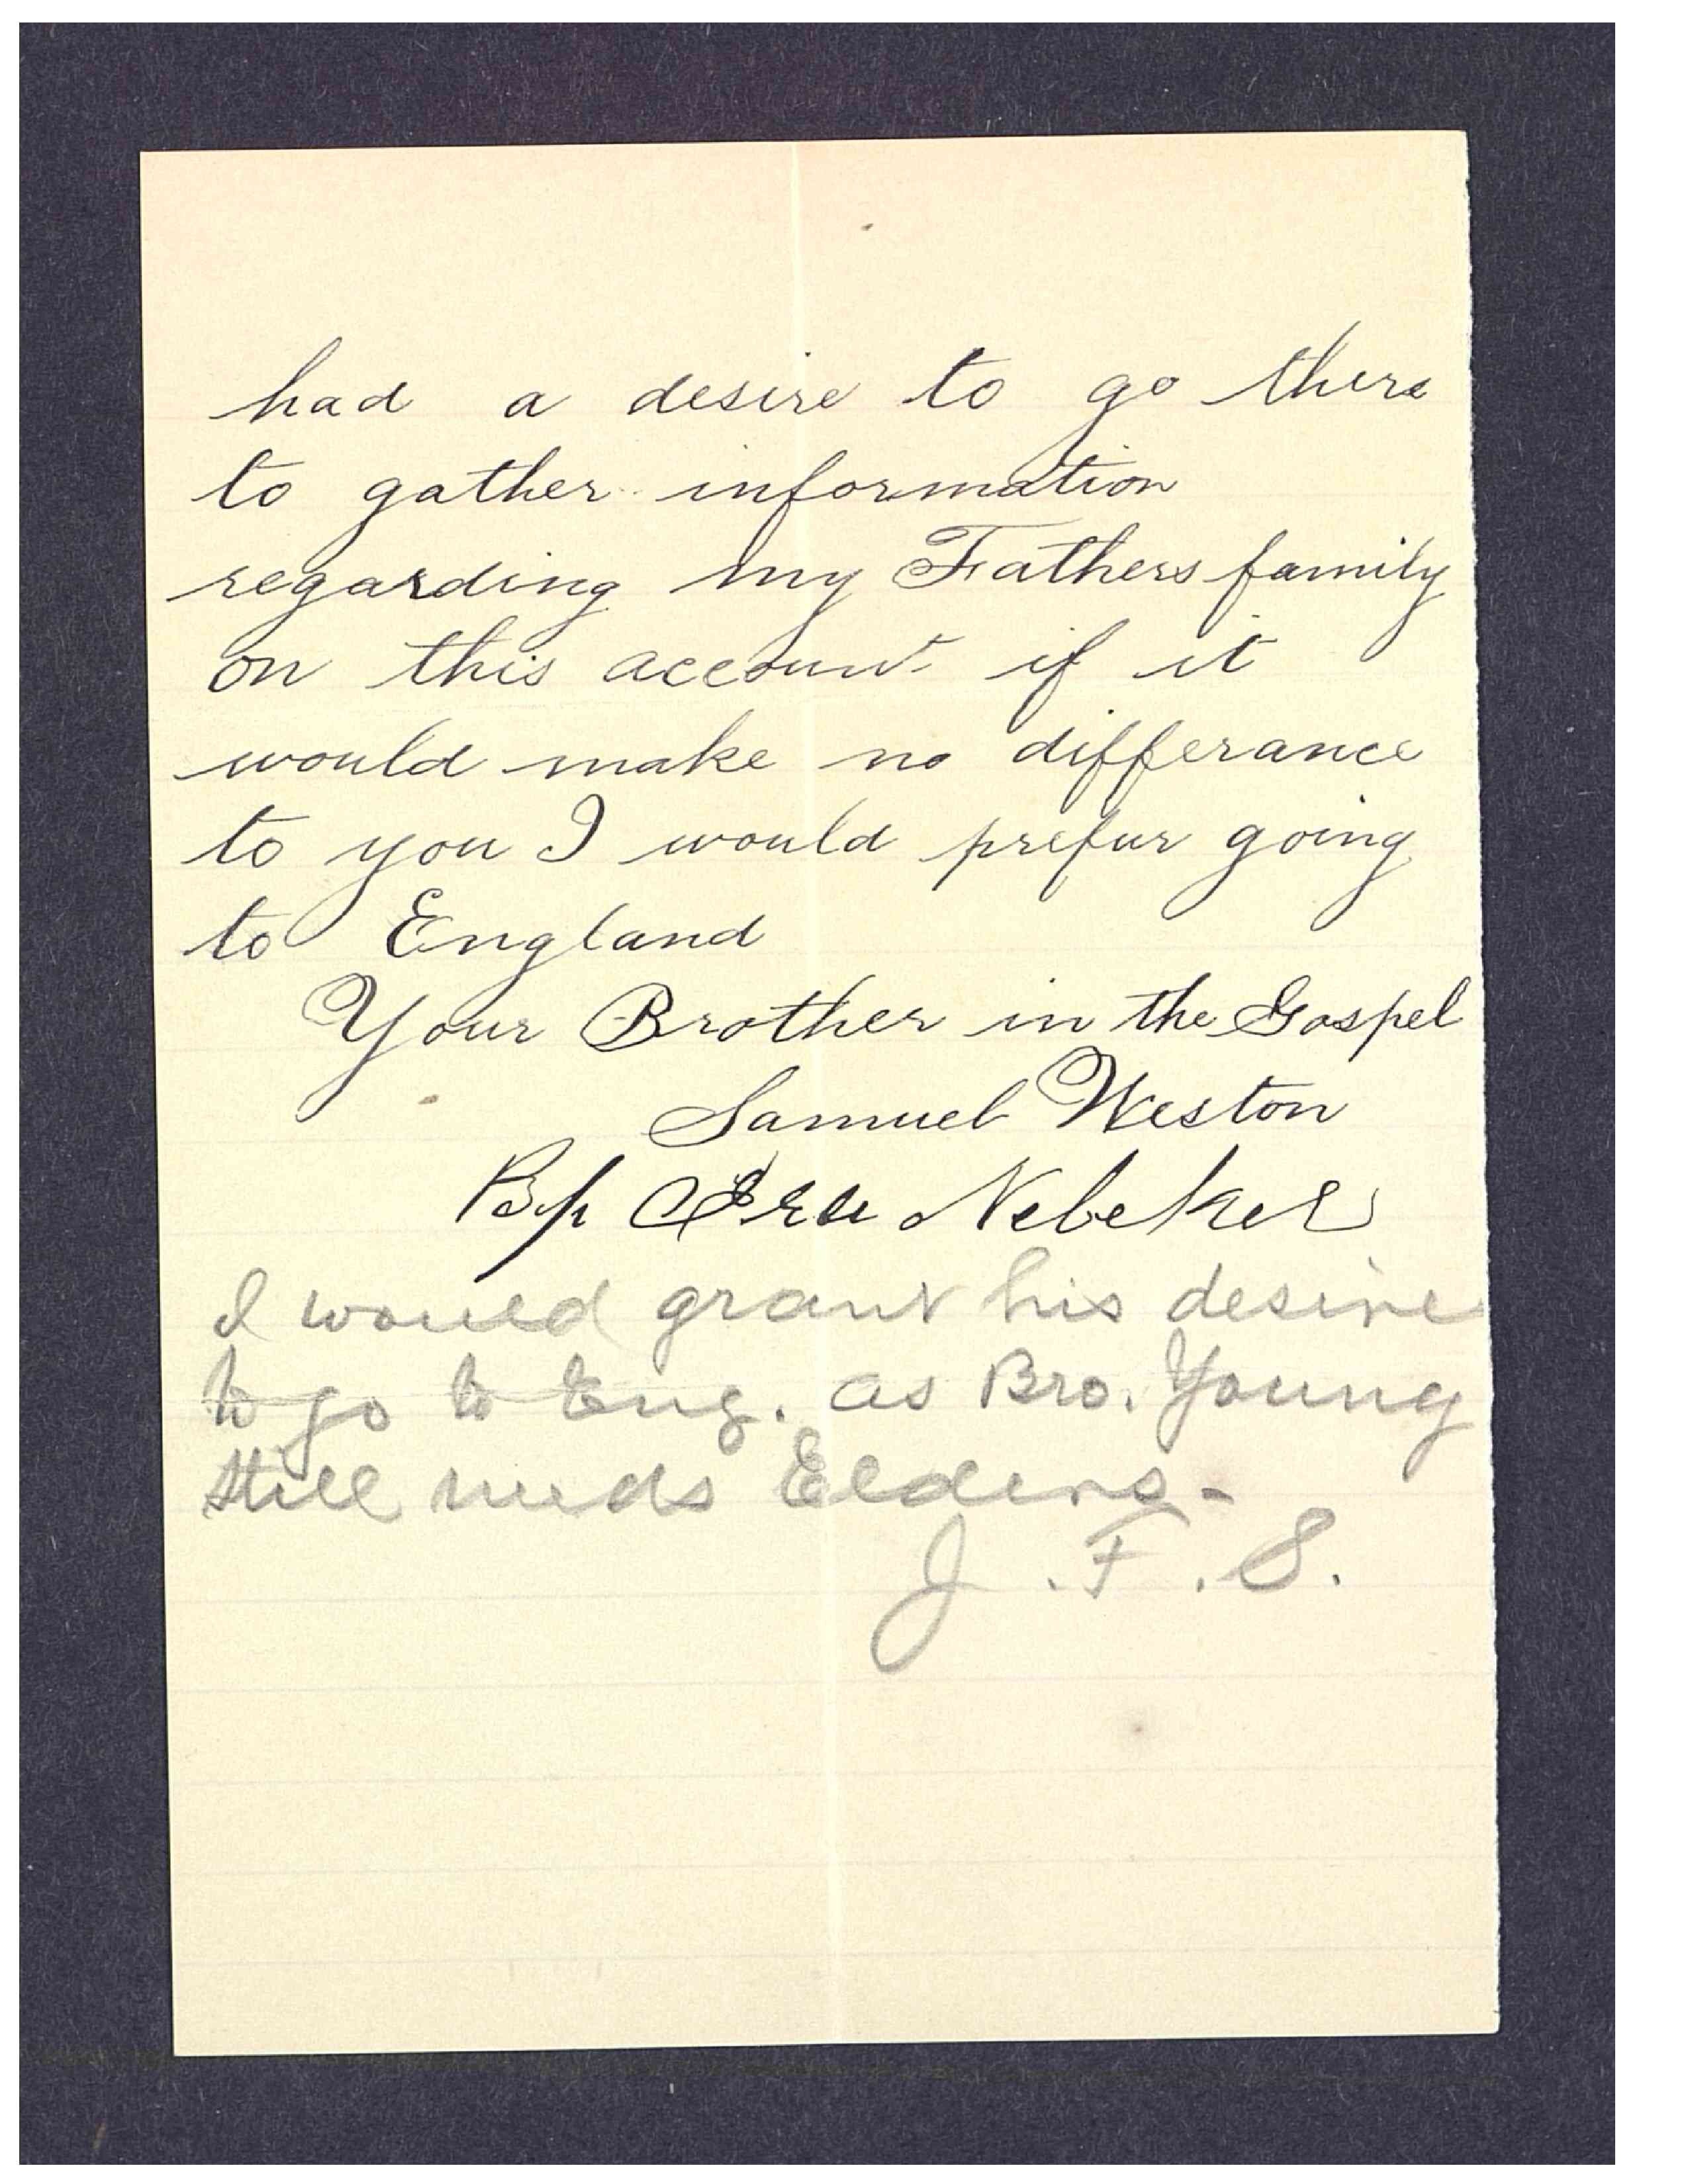 had a desire to go there
to gather information
regarding my Fathers family
on this account if it
would make no differance
to you I would prefur going
to England
Your Brother in the Gospel
Samuel Weston
Bp Ira Nebeker
I would grant his desire
to go to Eng. as Bro. Young
still needs Elders-
J.F.S.